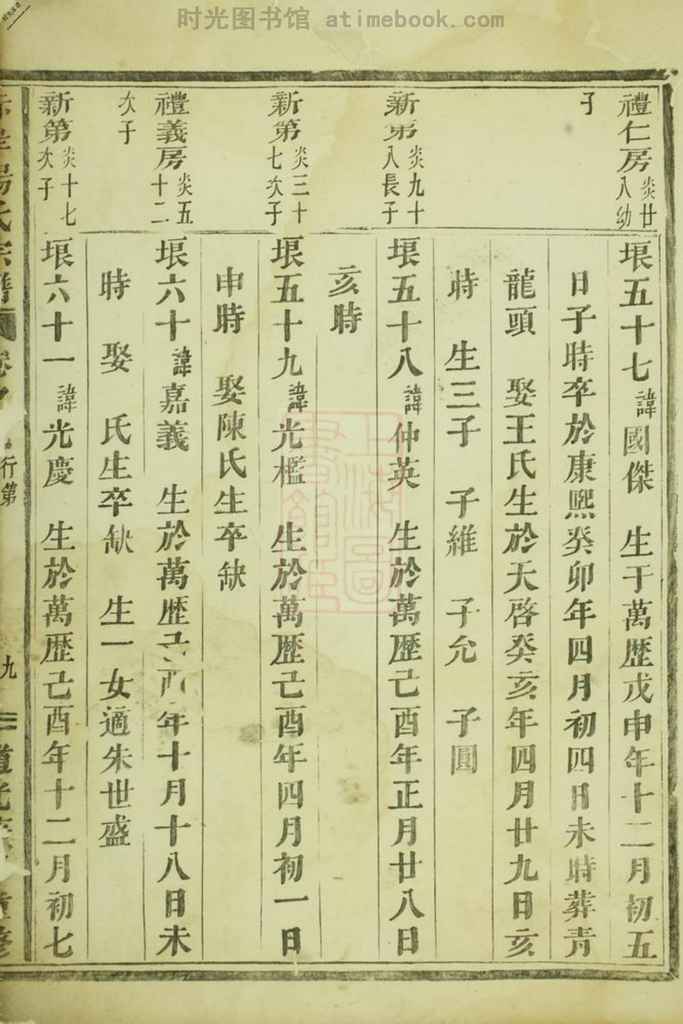 时光图书馆 atimebook.com
禮仁房炎廿八幼子
垠五十七諱國傑 生于萬歷戊申年十二月初五
日子時卒於康熙癸卯年四月初四日未時葬青
龍頭 娶王氏生於天啓癸亥年四月廿九日亥
時 生三子 子維 子允 子圓
新第炎九十八長子
垠五十八諱仲英 生於萬歷己酉年正月廿八日
亥時
新第炎三十七次子
垠五十九諱光檻 生於萬歷己酉年四月初一日
申時 娶陳氏生卒缺
禮義房炎五十二次子
垠六十諱嘉義 生於萬歷己酉年十月十八日未
時 娶 氏生卒缺 生一女適朱世盛
新第炎十七次子
垠六十一諱光慶 生於萬歷己酉年十二月初七
行第
九